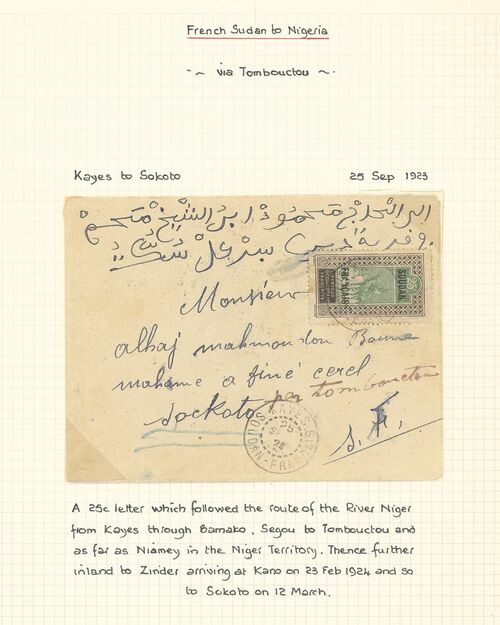 French Sudan to Nigeria
~ via Tombouctou ~
Kayes to Sokoto 25 Sep 1923
الى الحاج محمود ابن الشيخ
سركل
SOUDAN
FRANÇAIS
25
Monsieur
alhaj mahmoudou
mahame a finé cercl
Sockoto par tombouctou
S.F.
KAYES-SOUDAN FRANÇAIS
25
A 25c letter which followed the route of the River Niger
from Kayes through Bamako, Segou to Tombouctou and
as far as Niamey in the Niger Territory. Thence further
inland to Zinder arriving at Kano on 23 Feb 1924 and so
to Sokoto on 12 March.